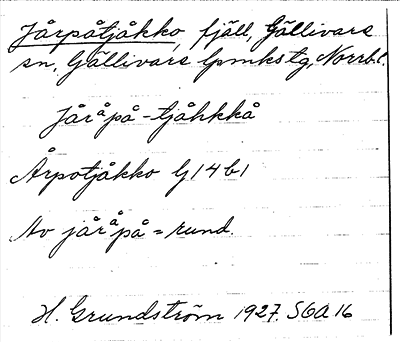 Jårpåtjåkko, fjäll, Gällivare
sn, Gällivare lpmkstg, Norrb.l.
Jårᵃ̊på-tjåhkkå
Årpotjåkko G14b1
Av jårᵃ̊på = rund.
H. Grundström 1927. S6A16